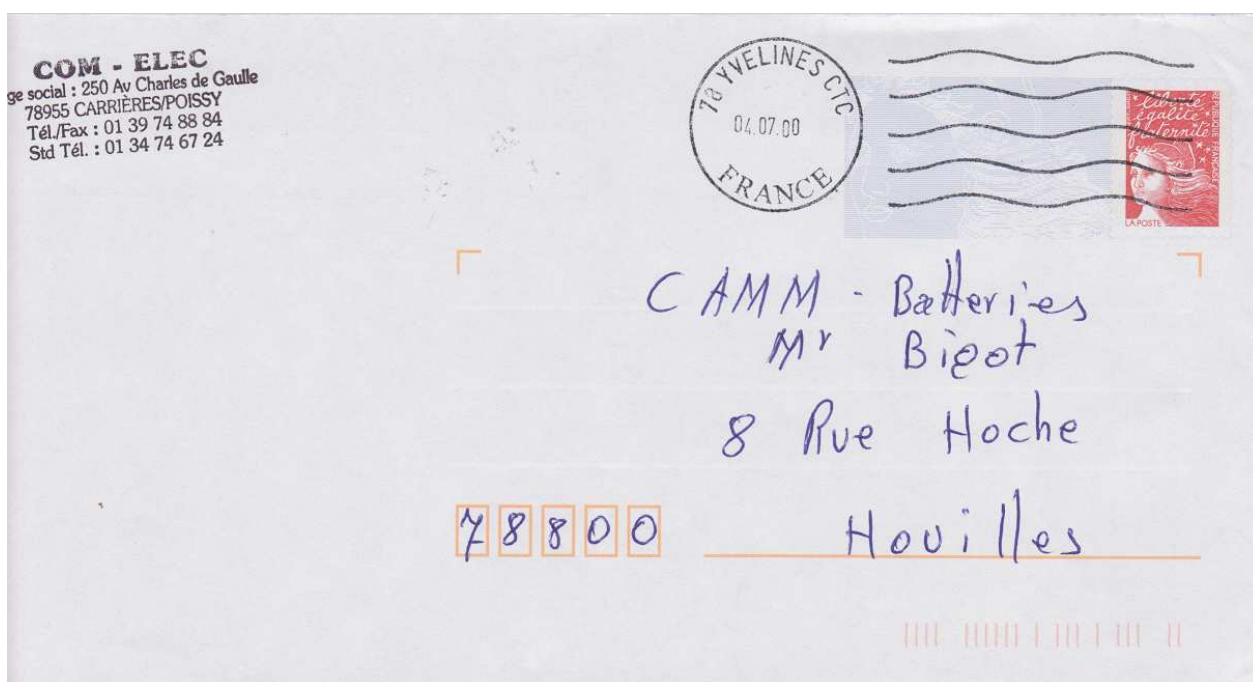 COM - ELEC
ge social : 250 Av Charles de Gaulle
78955 CARRIÈRES/POISSY
Tél./Fax : 01 39 74 88 84
Std Tél. : 01 34 74 67 24
78 YVELINES CTC
04.07.00
FRANCE
liberté
égalité
fraternité
REPUBLIQUE FRANÇAISE
LA POSTE
CAMM - Batteries
Mr Bigot
8 Rue Hoche
78800 Houilles